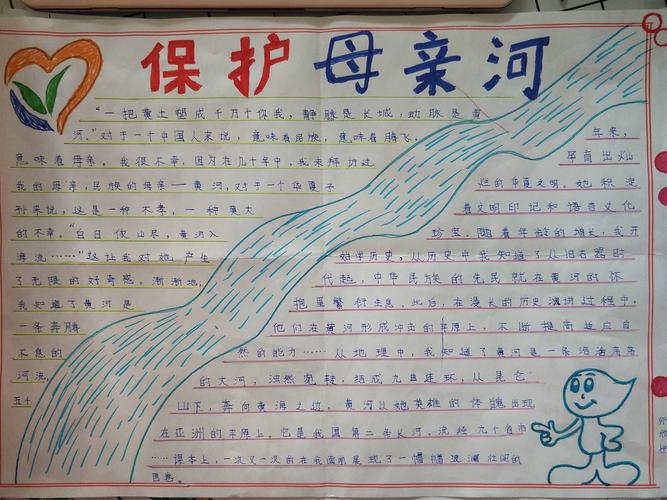 保护母亲河
"一把黄土塑成千万个你我，静脉是长城，动脉是黄
河。"对于一个中国人来说，意味着民族，意味着腾飞，
意味着母亲。我很不幸，因为在几十年中，我未拜访过
我的母亲，民族的母亲——黄河，对于一个华夏子
孙来说，这是一种不孝，一种莫大
的不幸。"白日依山尽，黄河入
海流……"这让我对她产生
了无限的好奇感。渐渐地，
我知道了黄河是
一条奔腾
不息的
河流，
五千
年来，
孕育出灿
烂的华夏文明。她积淀
着文明印记和语言文化
珍宝。随着年龄的增长，我开
始学历史。从历史中我知道了从旧石器时
代起，中华民族的先民就在黄河的怀
抱里繁衍生息。此后，在漫长的历史演进过程中，
他们在黄河形成冲击的平原上，不断提高适应自
然的能力……从地理中，我知道了黄河是一条浩浩荡荡
的大河，浊然宛转，结成九曲连环，从昆仑
山下，奔向黄海之边。黄河以她英雄的体魄出现
在亚洲的平原上。它是我国第二条长河。流经九个省市
……课本上，一次又一次的在我面前展现了一幅幅波澜壮阔的
画卷。